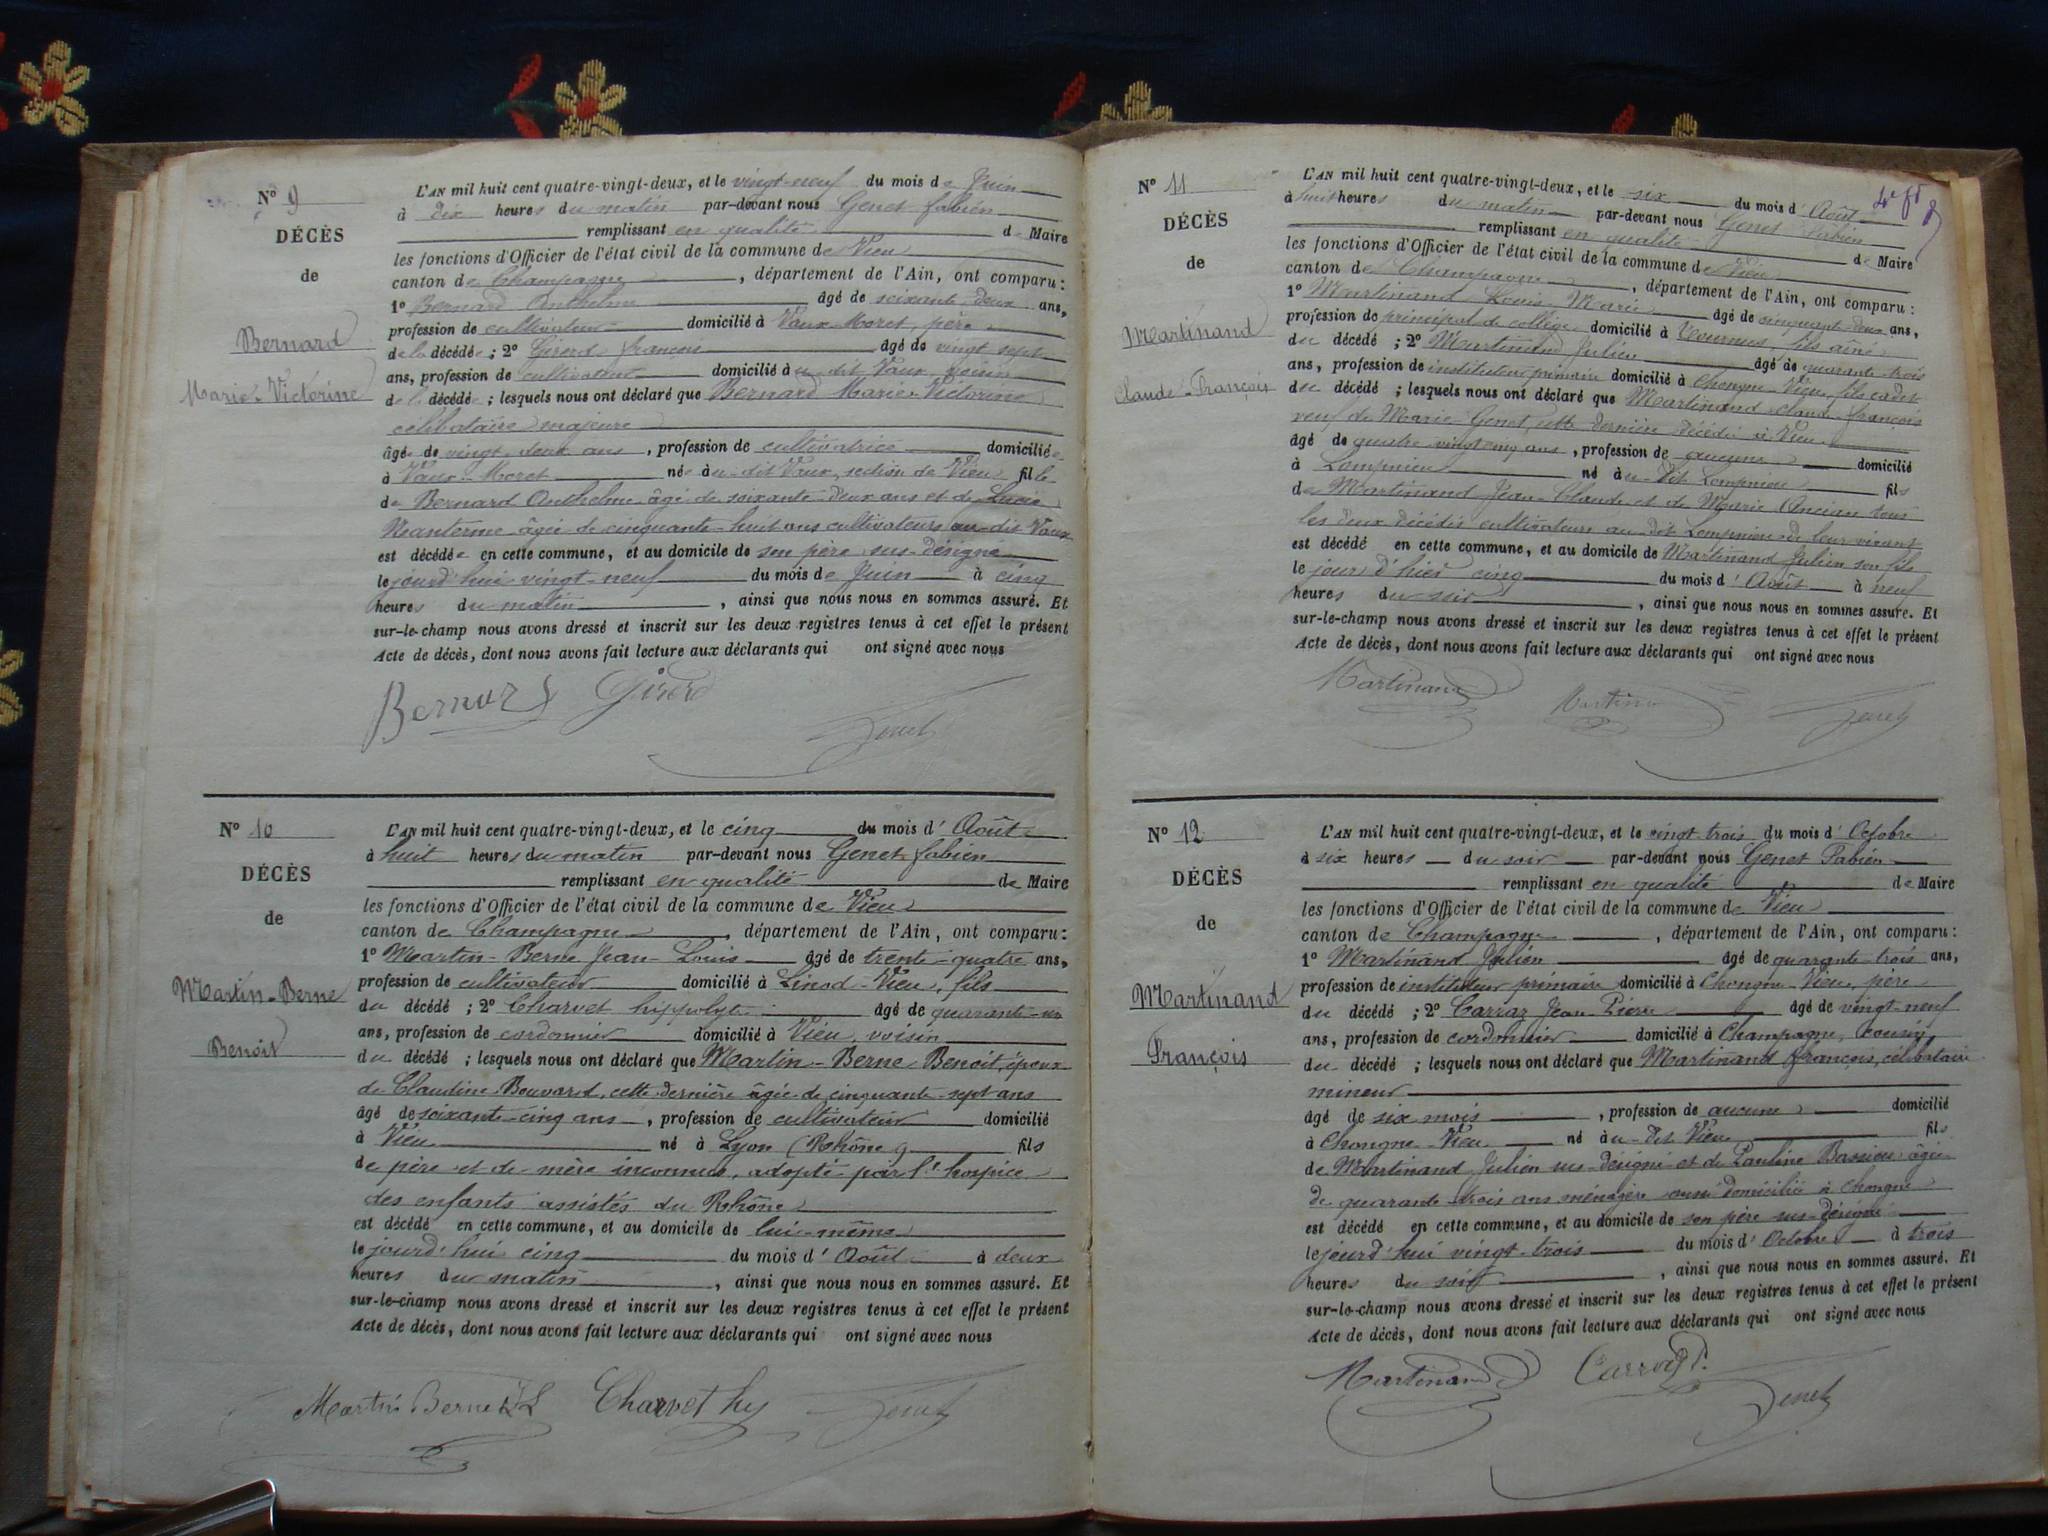 N° 9
DÉCÈS
de
Bernard
Marie-Victorine
L'AN mil huit cent quatre-vingt-deux, et le vingt-neuf du mois de Juin
à dix heures du matin par-devant nous Genet fabien
remplissant en qualité de Maire
les fonctions d'Officier de l'état civil de la commune de Vieu
canton de Champagne, département de l'Ain, ont comparu :
1° Bernard Anthelme âgé de soixante-deux ans,
profession de cultivateur domicilié à Vaux-Moret, père
de la décédée ; 2° Girord françois âgé de vingt sept
ans, profession de cultivateur domicilié à u-dit Vaux, voisin
de la décédée ; lesquels nous ont déclaré que Bernard Marie-Victorine
célibataire majeure
âgée de vingt-deux ans, profession de cultivatrice domiciliée
à Vaux-Moret née à u-dit Vaux, section de Vieu fille
de Bernard Anthelme âgé de soixante-deux ans et de Lucie
Nanterme âgée de cinquante-huit ans cultivateurs au-dit Vaux
est décédée en cette commune, et au domicile de son père sus-désigné
le jourd'hui vingt-neuf du mois de Juin à cinq
heures du matin, ainsi que nous nous en sommes assuré. Et
sur-le-champ nous avons dressé et inscrit sur les deux registres tenus à cet effet le présent
Acte de décès, dont nous avons fait lecture aux déclarants qui ont signé avec nous
Bernard Girord
Genet
N° 10
DÉCÈS
de
Martin-Berne
Benoit
L'AN mil huit cent quatre-vingt-deux, et le cinq du mois d'Août
à huit heures du matin par-devant nous Genet fabien
remplissant en qualité de Maire
les fonctions d'Officier de l'état civil de la commune de Vieu
canton de Champagne, département de l'Ain, ont comparu :
1° Martin-Berne Jean-Louis âgé de trente-quatre ans,
profession de cultivateur domicilié à Linod-Vieu, fils
du décédé ; 2° Charvet hippolyte âgé de quarante-un
ans, profession de cordonnier domicilié à Vieu, voisin
du décédé ; lesquels nous ont déclaré que Martin-Berne Benoit, époux
de Claudine Bouvard, cette dernière âgée de cinquante-sept ans
âgé de soixante-cinq ans, profession de cultivateur domicilié
à Vieu né à Lyon (Rhône) fils
de père et de mère inconnus, adopté par l'hospice
des enfants assistés du Rhône
est décédé en cette commune, et au domicile de lui-même
le jourd'hui cinq du mois d'Août à deux
heures du matin, ainsi que nous nous en sommes assuré. Et
sur-le-champ nous avons dressé et inscrit sur les deux registres tenus à cet effet le présent
Acte de décès, dont nous avons fait lecture aux déclarants qui ont signé avec nous
Martin Berne JL Charvet hy Genet
N° 11
DÉCÈS
de
Martinand
Claude-François
L'AN mil huit cent quatre-vingt-deux, et le six du mois d'Août
à huit heures du matin par-devant nous Genet Fabien
remplissant en qualité de Maire
les fonctions d'Officier de l'état civil de la commune de Vieu
canton de Champagne, département de l'Ain, ont comparu :
1° Martinand Louis-Marie âgé de cinquante-deux ans,
profession de principal de collège domicilié à Tournus, fils aîné
du décédé ; 2° Martinand Julien âgé de quarante-trois
ans, profession de instituteur primaire domicilié à Chongne-Vieu, fils cadet
du décédé ; lesquels nous ont déclaré que Martinand claude-françois
veuf de Marie Genet, cette dernière décédée à Vieu
âgé de quatre-vingt-cinq ans, profession de aucune domicilié
à Lompnieu né à u-dit Lompnieu fils
de Martinand Jean-Claude et de Marie Ancian tous
les deux décédés cultivateurs au dit Lompnieu de leur vivant
est décédé en cette commune, et au domicile de Martinand Julien son fils
le jour d'hier cinq du mois d'Août à neuf
heures du soir, ainsi que nous nous en sommes assuré. Et
sur-le-champ nous avons dressé et inscrit sur les deux registres tenus à cet effet le présent
Acte de décès, dont nous avons fait lecture aux déclarants qui ont signé avec nous
Martinand Martinand Genet
N° 12
DÉCÈS
de
Martinand
François
L'AN mil huit cent quatre-vingt-deux, et le vingt-trois du mois d'Octobre
à six heures du soir par-devant nous Genet Fabien
remplissant en qualité de Maire
les fonctions d'Officier de l'état civil de la commune de Vieu
canton de Champagne, département de l'Ain, ont comparu :
1° Martinand Julien âgé de quarante-trois ans,
profession de instituteur primaire domicilié à Chongne-Vieu, père
du décédé ; 2° Carraz Jean-Pierre âgé de vingt-neuf
ans, profession de cordonnier domicilié à Champagne, cousin
du décédé ; lesquels nous ont déclaré que Martinand françois, célibataire
mineur
âgé de six mois, profession de aucune domicilié
à Chongne-Vieu né à u-dit Vieu fils
de Martinand Julien sus-désigné et de Pauline Bassieu âgée
de quarante-trois ans ménagère aussi domiciliée à Chongne
est décédé en cette commune, et au domicile de son père sus-désigné
le jourd'hui vingt-trois du mois d'Octobre à trois
heures du soir, ainsi que nous nous en sommes assuré. Et
sur-le-champ nous avons dressé et inscrit sur les deux registres tenus à cet effet le présent
Acte de décès, dont nous avons fait lecture aux déclarants qui ont signé avec nous
Martinand Carraz P. Genet